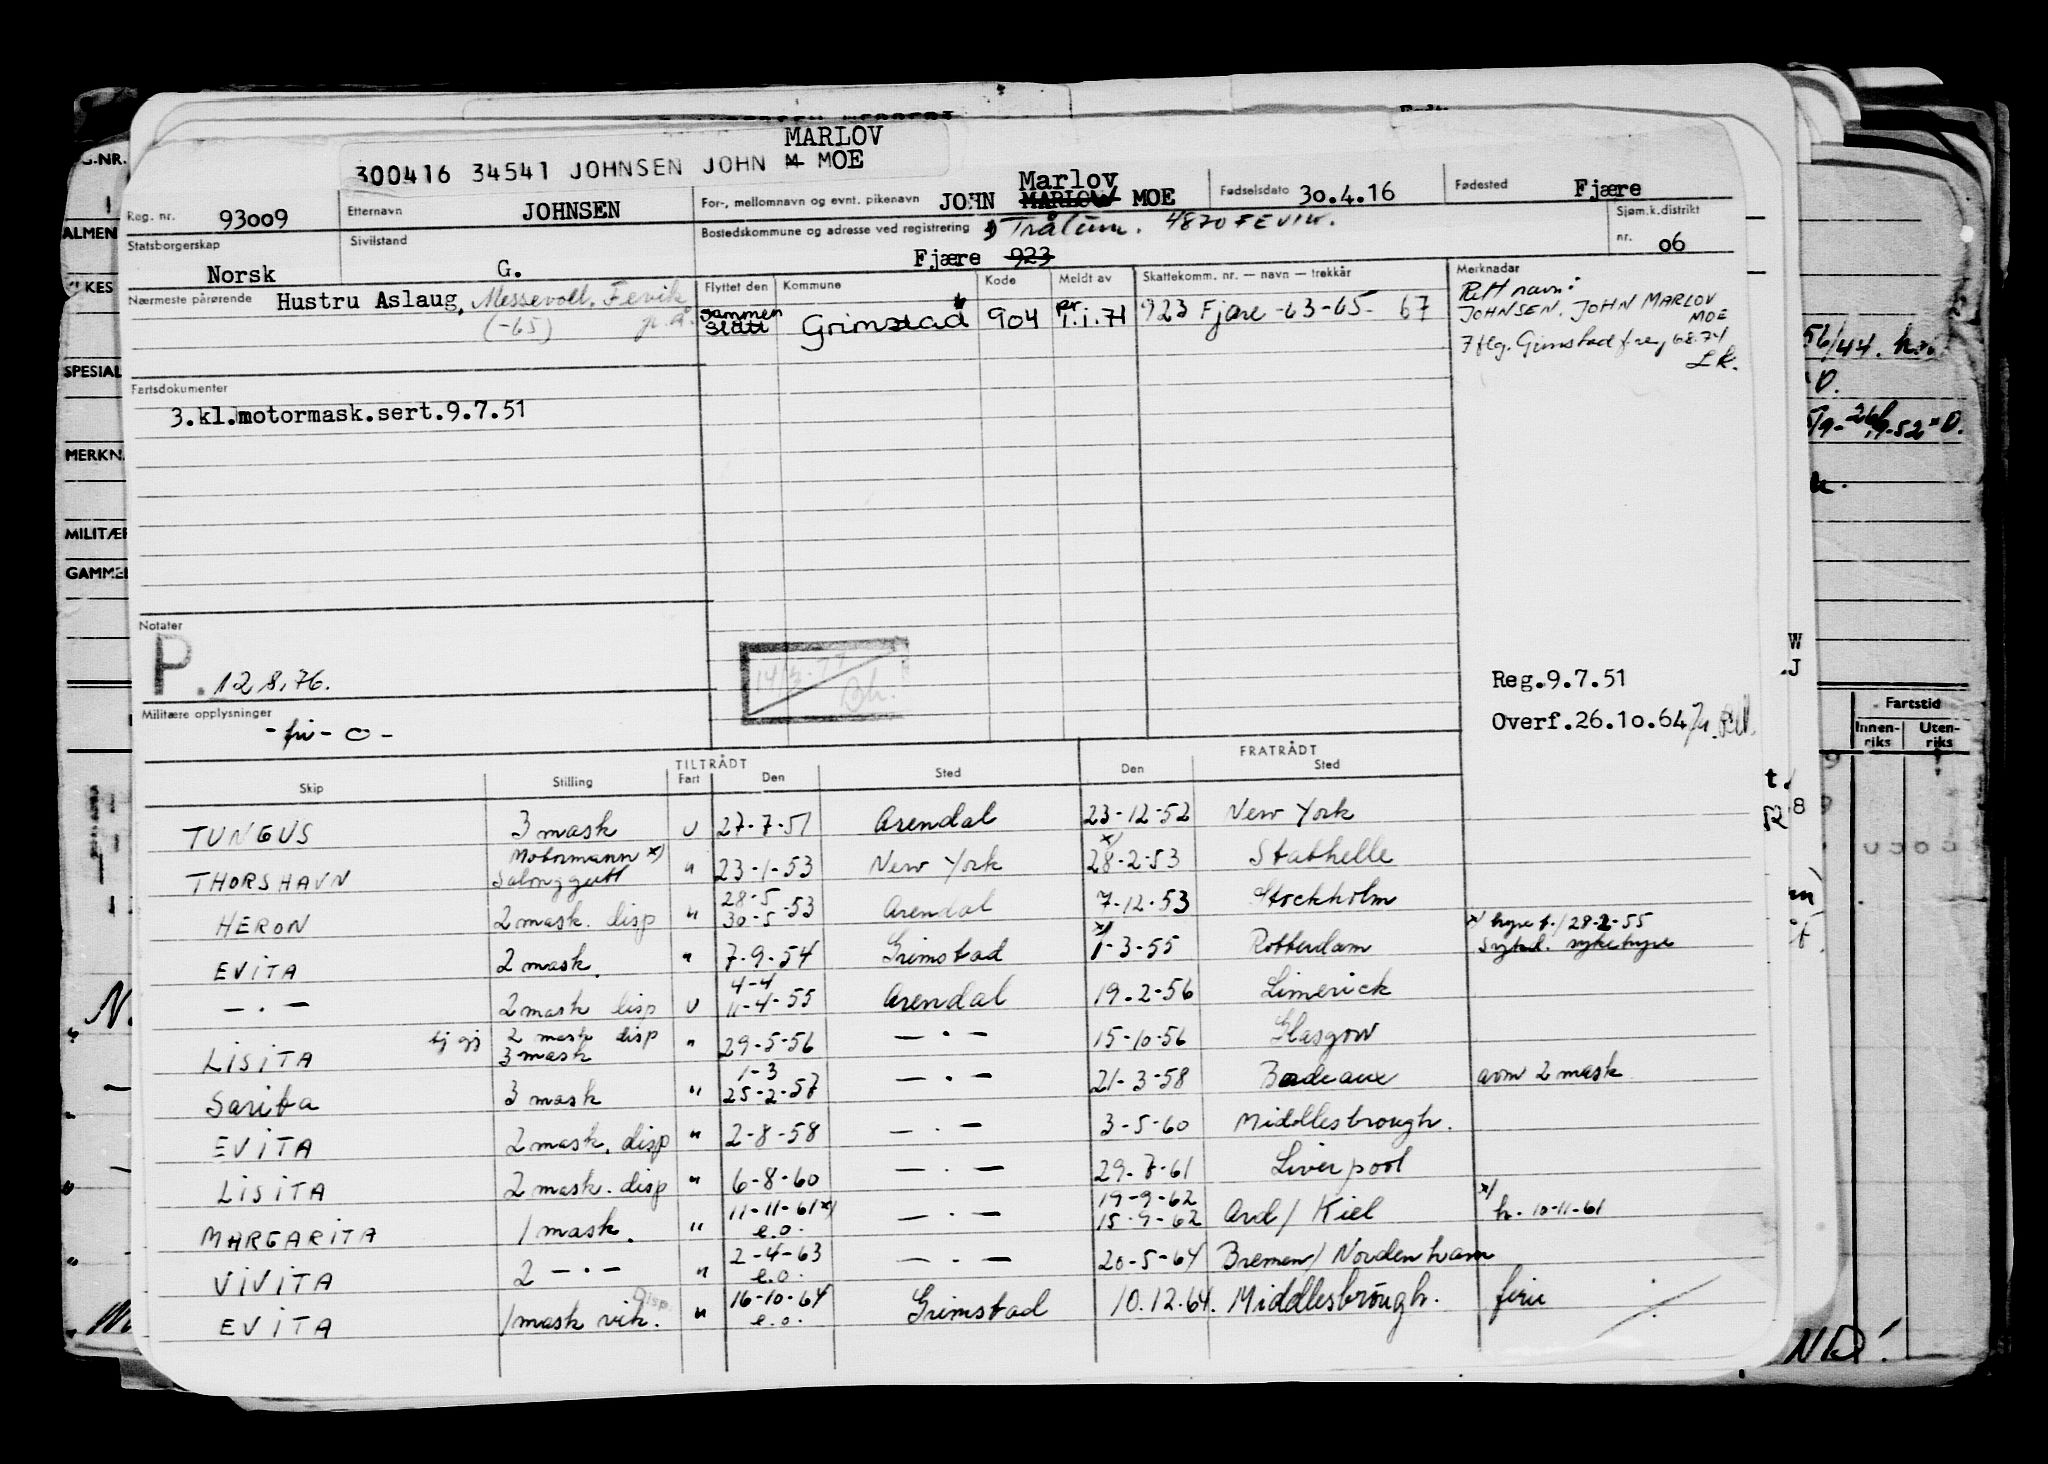 MARLOV
300416 34541 JOHNSEN JOHN M MOE
Reg. nr. 93009
Etternavn JOHNSEN
For-, mellomnavn og evnt. pikenavn JOHN Marlov MARLOW MOE
Fødselsdato 30.4.16
Fødested Fjære
Statsborgerskap Norsk
Sivilstand G.
Bostedskommune og adresse ved registrering 4870 FEVIK.
Fjære 923
Sjøm.k.distrikt nr. 06
Nærmeste pårørende Hustru Aslaug, Fevik
(-65)
Flyttet den Kommune Kode Meldt av Skattekomm. nr. — navn — trekkår Merknader
Sammen slått Grimstad 904 pr 1.1.71 923 Fjære -63-65- 67
Rett navn:
JOHNSEN. JOHN MARLOV
MOE
Fartsdokumenter
3.kl.motormask.sert.9.7.51
Notater
P. 12.8.76.
Reg.9.7.51
Militære opplysninger
-fri-0-
Overf.26.10.64
TILTRÅDT FRATRÅDT
Skip Stilling Fart Den Sted Den Sted
TUNGUS 3 mask U 27-7-51 Arendal 23-12-52 New York
THORSHAVN Motormann x) Salonggutt " 23-1-53 New York x) 28-2-53 Stathelle
HERON 2 mask. disp " 28-5 30-5-53 Arendal 7-12-53 Stockholm
EVITA 2 mask. " 7-9-54 Grimstad x) 1-3-55 Rotterdam x) hyre t./28-2-55 sykehyre
— · — 2 mask disp U 4-4 11-4-55 Arendal 19-2-56 Limerick
LISITA tj gj 2 mask disp 3 mask " 29-5-56 — · — 15-10-56 Glasgow
Sarita 3 mask " 1-3 25-2-57 — · — 21-3-58 Bordeaux avm 2 mask
EVITA 2 mask. disp " 2-8-58 — · — 3-5-60 Middlesbrough.
LISITA 2 mask. disp " 6-8-60 — · — 29-7-61 Liverpool
MARGARITA 1 mask. " 11-11-61 x) e.o. — · — 19-9-62 15-9-62 Ard/ Kiel x) h. 10-11-61
VIVITA 2 — · — " 2-4-63 e.o. — · — 20-5-64 Bremen/ Nordenham
EVITA 1 mask vik. Disp. " 16-10-64 e.o. Grimstad 10.12.64. Middlesbrough. ferie
ALMEN
SPESIAL
MERKN.
MILITÆR
GAMMEL
Fartstid
Innen-riks Uten-riks